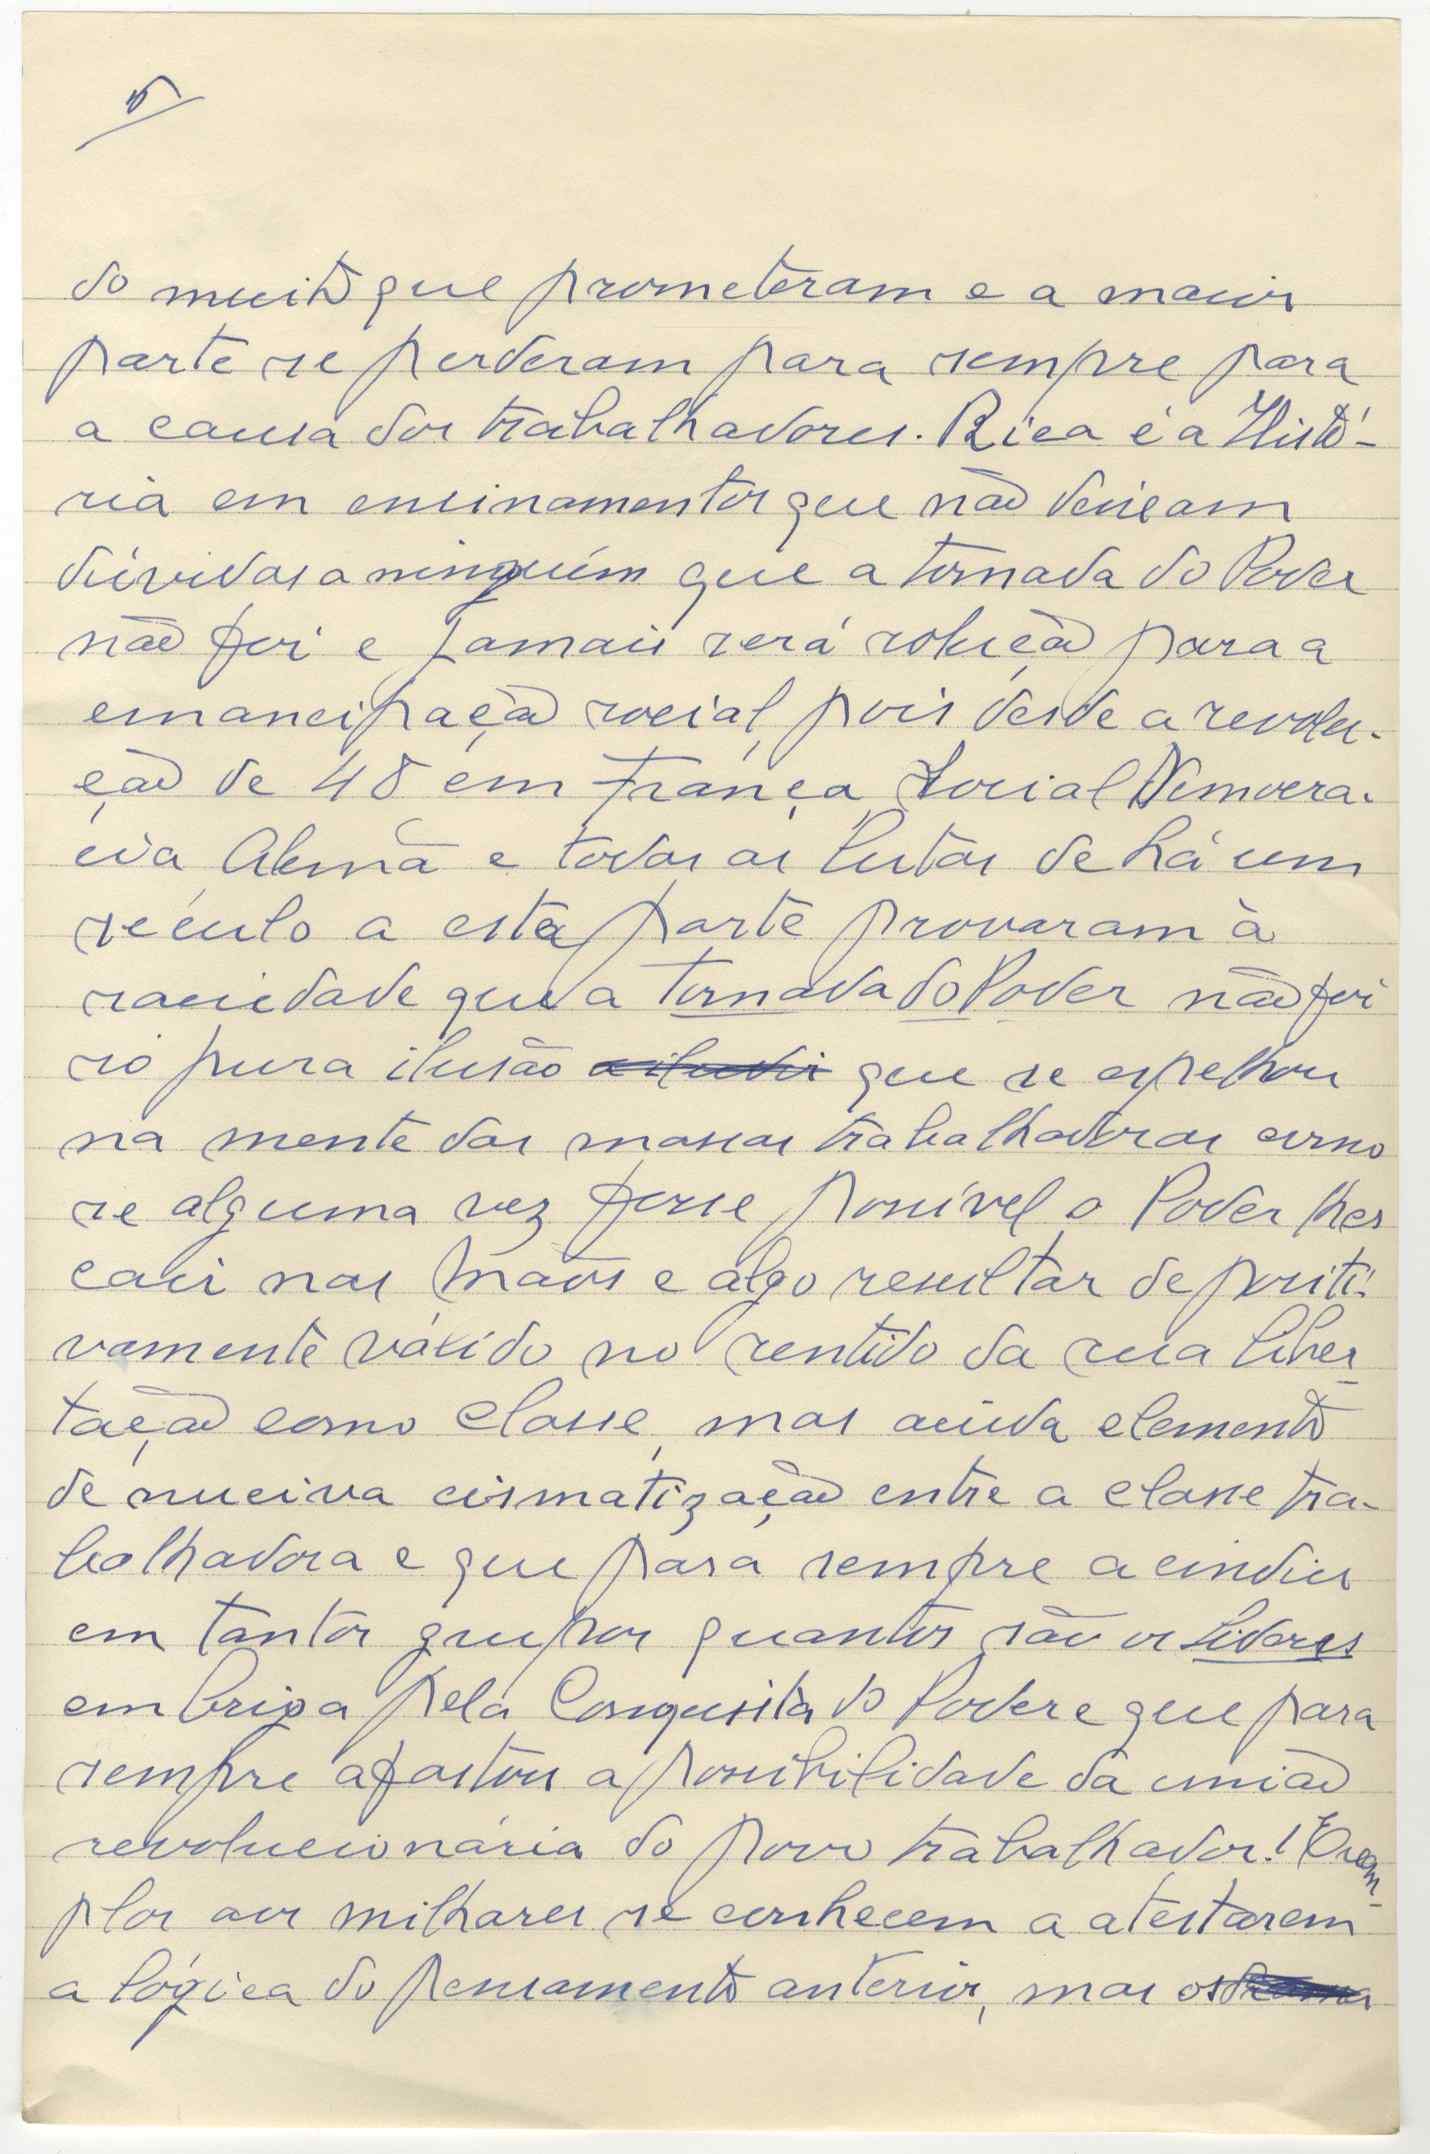 5
do muito que prometeram e a maior
parte se perderam para sempre para
a causa dos trabalhadores. Rica é a Histó-
ria em ensinamentos que não deixam
dúvidas a ninguém que a tomada do Poder
não foi e jamais será solução para a
emancipação social, pois desde a revolu-
ção de 48 em França, Social Democra-
cia Alemã e todas as lutas de há um
século a esta parte provaram à
saciedade que a tomada do Poder não foi
só pura ilusão que se espelhou
na mente das massas trabalhadoras como
se alguma vez fosse possível o Poder lhes
cair nas mãos e algo resultar de positi-
vamente válido no sentido da sua liber-
tação como classe, mas ainda elemento
de nuciva cismatização entre a classe tra-
balhadora e que para sempre a cindiu
em tantos grupos quantos são os Lideres
em briga pela Conquista do Poder e que para
sempre afastou a possibilidade da união
revolucionária do povo trabalhador! Exem-
plos aos milhares se conhecem a atestarem
a lógica do pensamento anterior, mas os